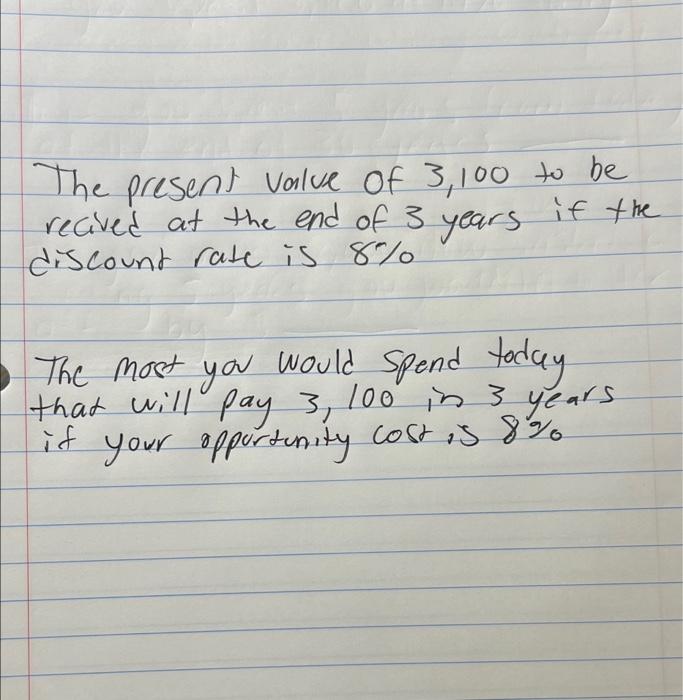 The present value of 3,100 to be
recived at the end of 3 years if the
discount rate is 8%
The most you would spend today
that will pay 3,100 in 3 years
if your opportunity cost is 8%